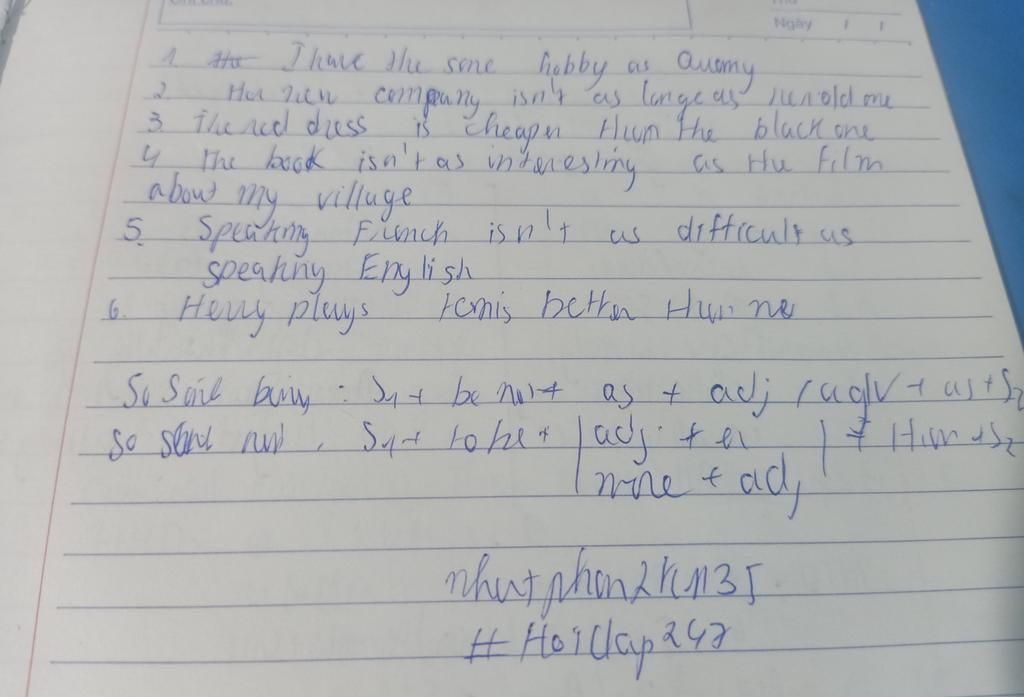 Ngày / /
1. I have the same hobby as
2. Her new company isn't as large as her old one
3 The red dress is cheaper than the black one
4 The book isn't as interesting as the film
about my village
5. Speaking French isn't as difficult as
speaking English
6. plays tennis better than me
So sánh bằng : S1 + be not + as + adj / adv + as + S2
so sánh hơn : S1 + to be + | adj + er | + than + S2
| more + adj |
nhutphan2k1135
#Hoidap247